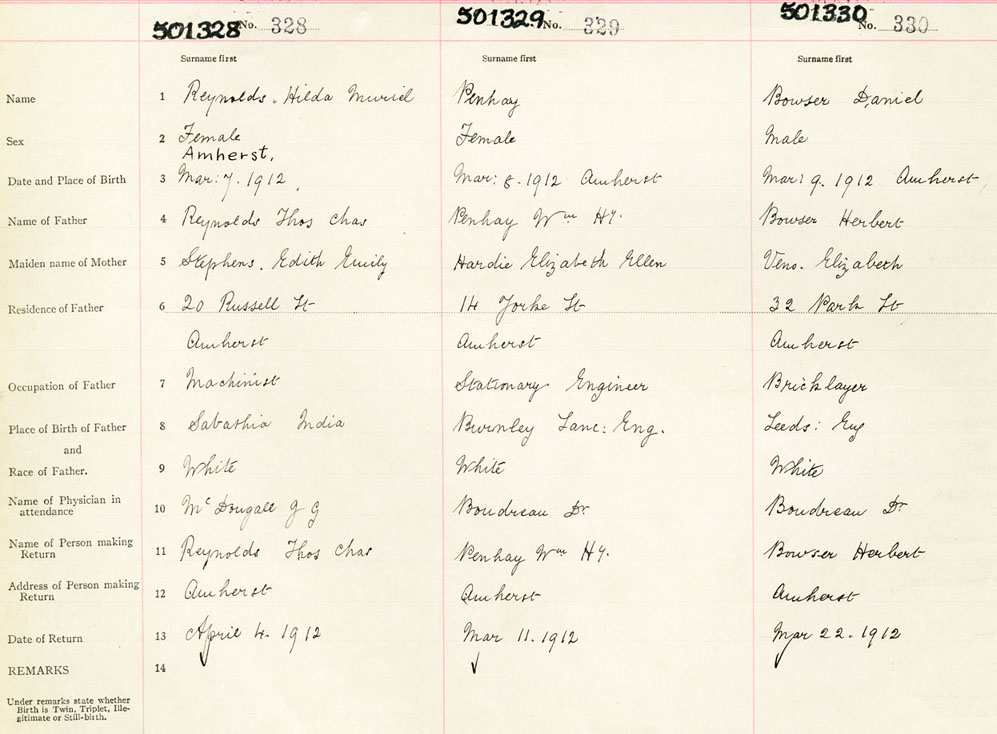 501328 No. 328 501329 No. 329 501330 No. 330
Surname first Surname first Surname first
Name 1 Reynolds. Hilda Muriel Penhay Bowser Daniel
Sex 2 Female Female Male
Amherst,
Date and Place of Birth 3 Mar: 7. 1912, Mar: 8. 1912 Amherst Mar: 9. 1912 Amherst
Name of Father 4 Reynolds Thos Chas Penhay Wm Hy. Bowser Herbert
Maiden name of Mother 5 Stephens. Edith Emily Hardie Elizabeth Ellen Veno. Elizabeth
Residence of Father 6 20 Russell St 14 Yorke St 32 Park St
Amherst Amherst Amherst
Occupation of Father 7 Machinist Stationary Engineer Bricklayer
Place of Birth of Father 8 Sabathia India Burnley Lanc: Eng. Leeds: Eng
and
Race of Father. 9 White White White
Name of Physician in
attendance 10 McDougall G G Boudreau Dr Boudreau Dr
Name of Person making
Return 11 Reynolds Thos Chas Penhay Wm Hy. Bowser Herbert
Address of Person making
Return 12 Amherst Amherst Amherst
Date of Return 13 April 4. 1912 Mar 11. 1912 Mar 22. 1912
REMARKS 14
Under remarks state whether
Birth is Twin, Triplet, Ille-
gitimate or Still-birth.